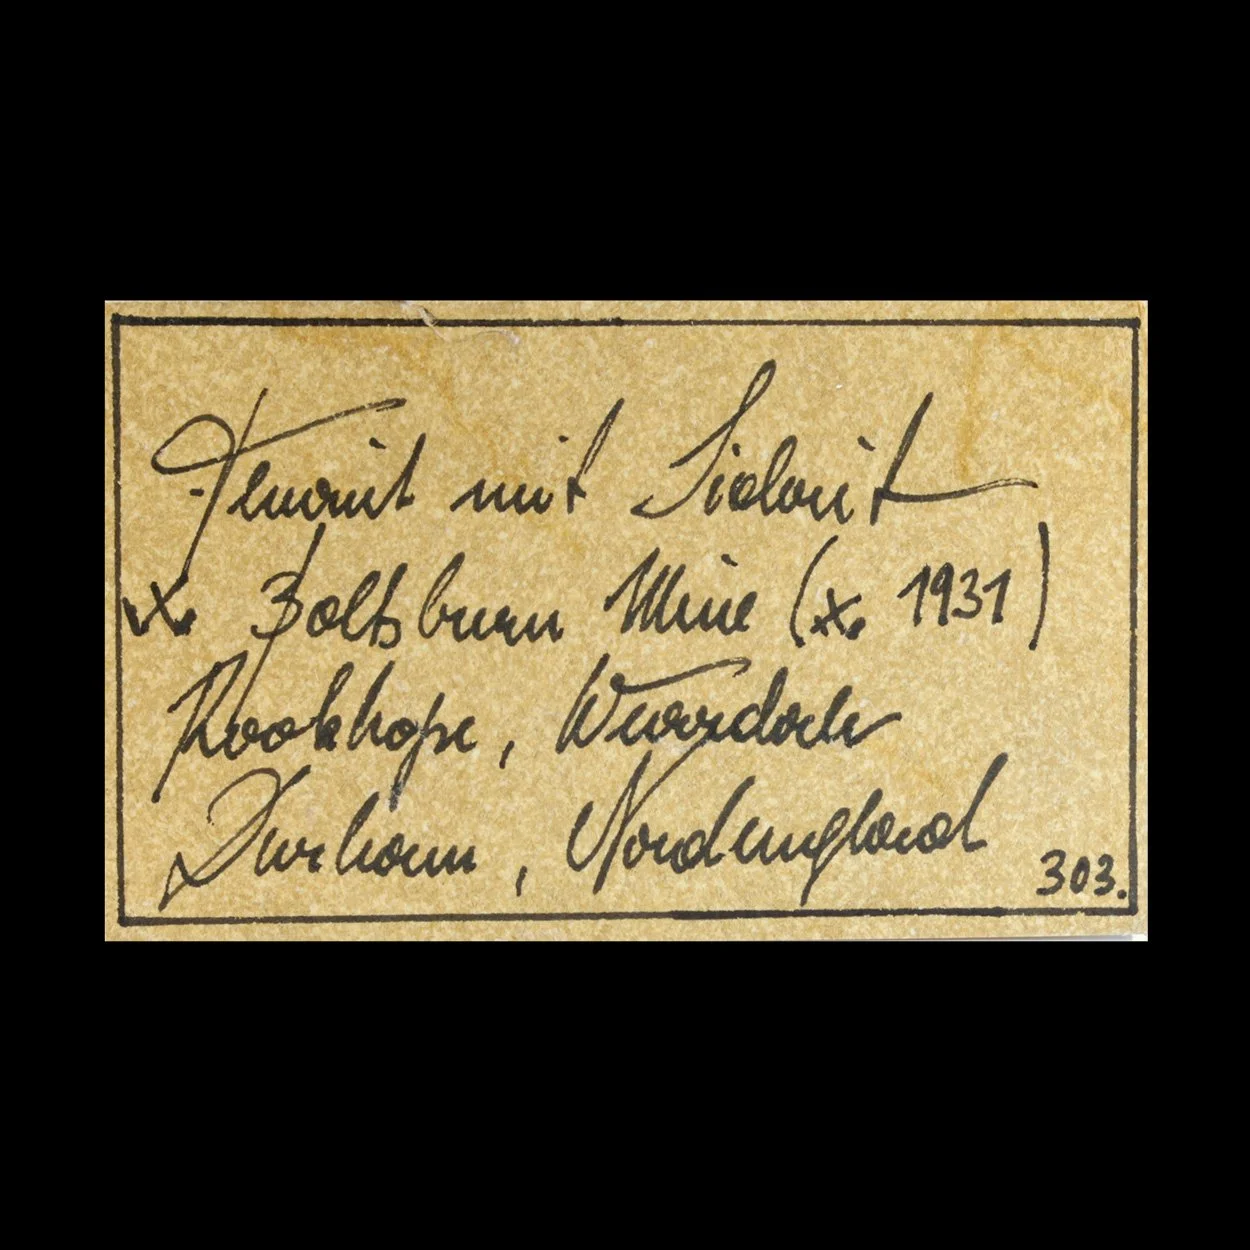 Fluorit mit Siderit
x. Boltsburn Mine (x. 1931)
Rookhope, Weardale
Durham, Nordengland
303.